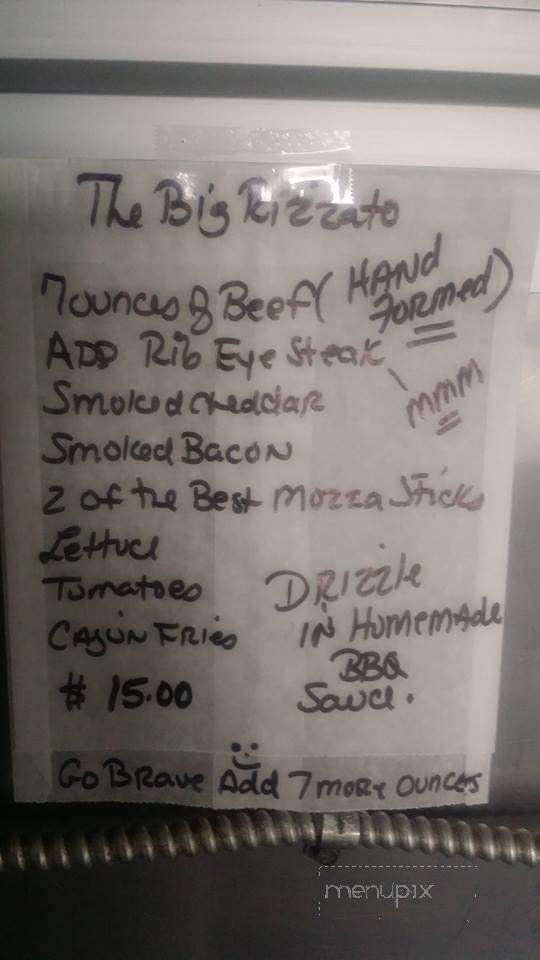 The Big Rizzato
7 ounces of Beef (HAND FORMED)
ADD Rib Eye Steak
MMM
Smoked cheddar
Smoked Bacon
2 of the Best Mozza Sticks
Lettuce
Tomatoes
CAJUN FRIES
$ 15.00
DRIZZLE
IN HOMEMADE
BBQ
Sauce.
GO BRAVE Add 7 more ounces
menupix